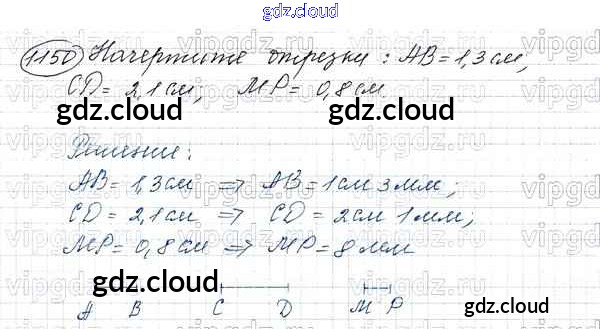 gdz.cloud
1150 Начертите отрезки : AB = 1,3 см;
CD = 2,1 см; MP = 0,8 см
gdz.cloud gdz.cloud
Решение:
AB = 1,3 см => AB = 1 см 3 мм;
CD = 2,1 см => CD = 2 см 1 мм;
gdz.cloud gdz.cloud
MP = 0,8 см => MP = 8 мм
gdz.cloud
A B C D M P
gdz.cloud
vipgdz.ru